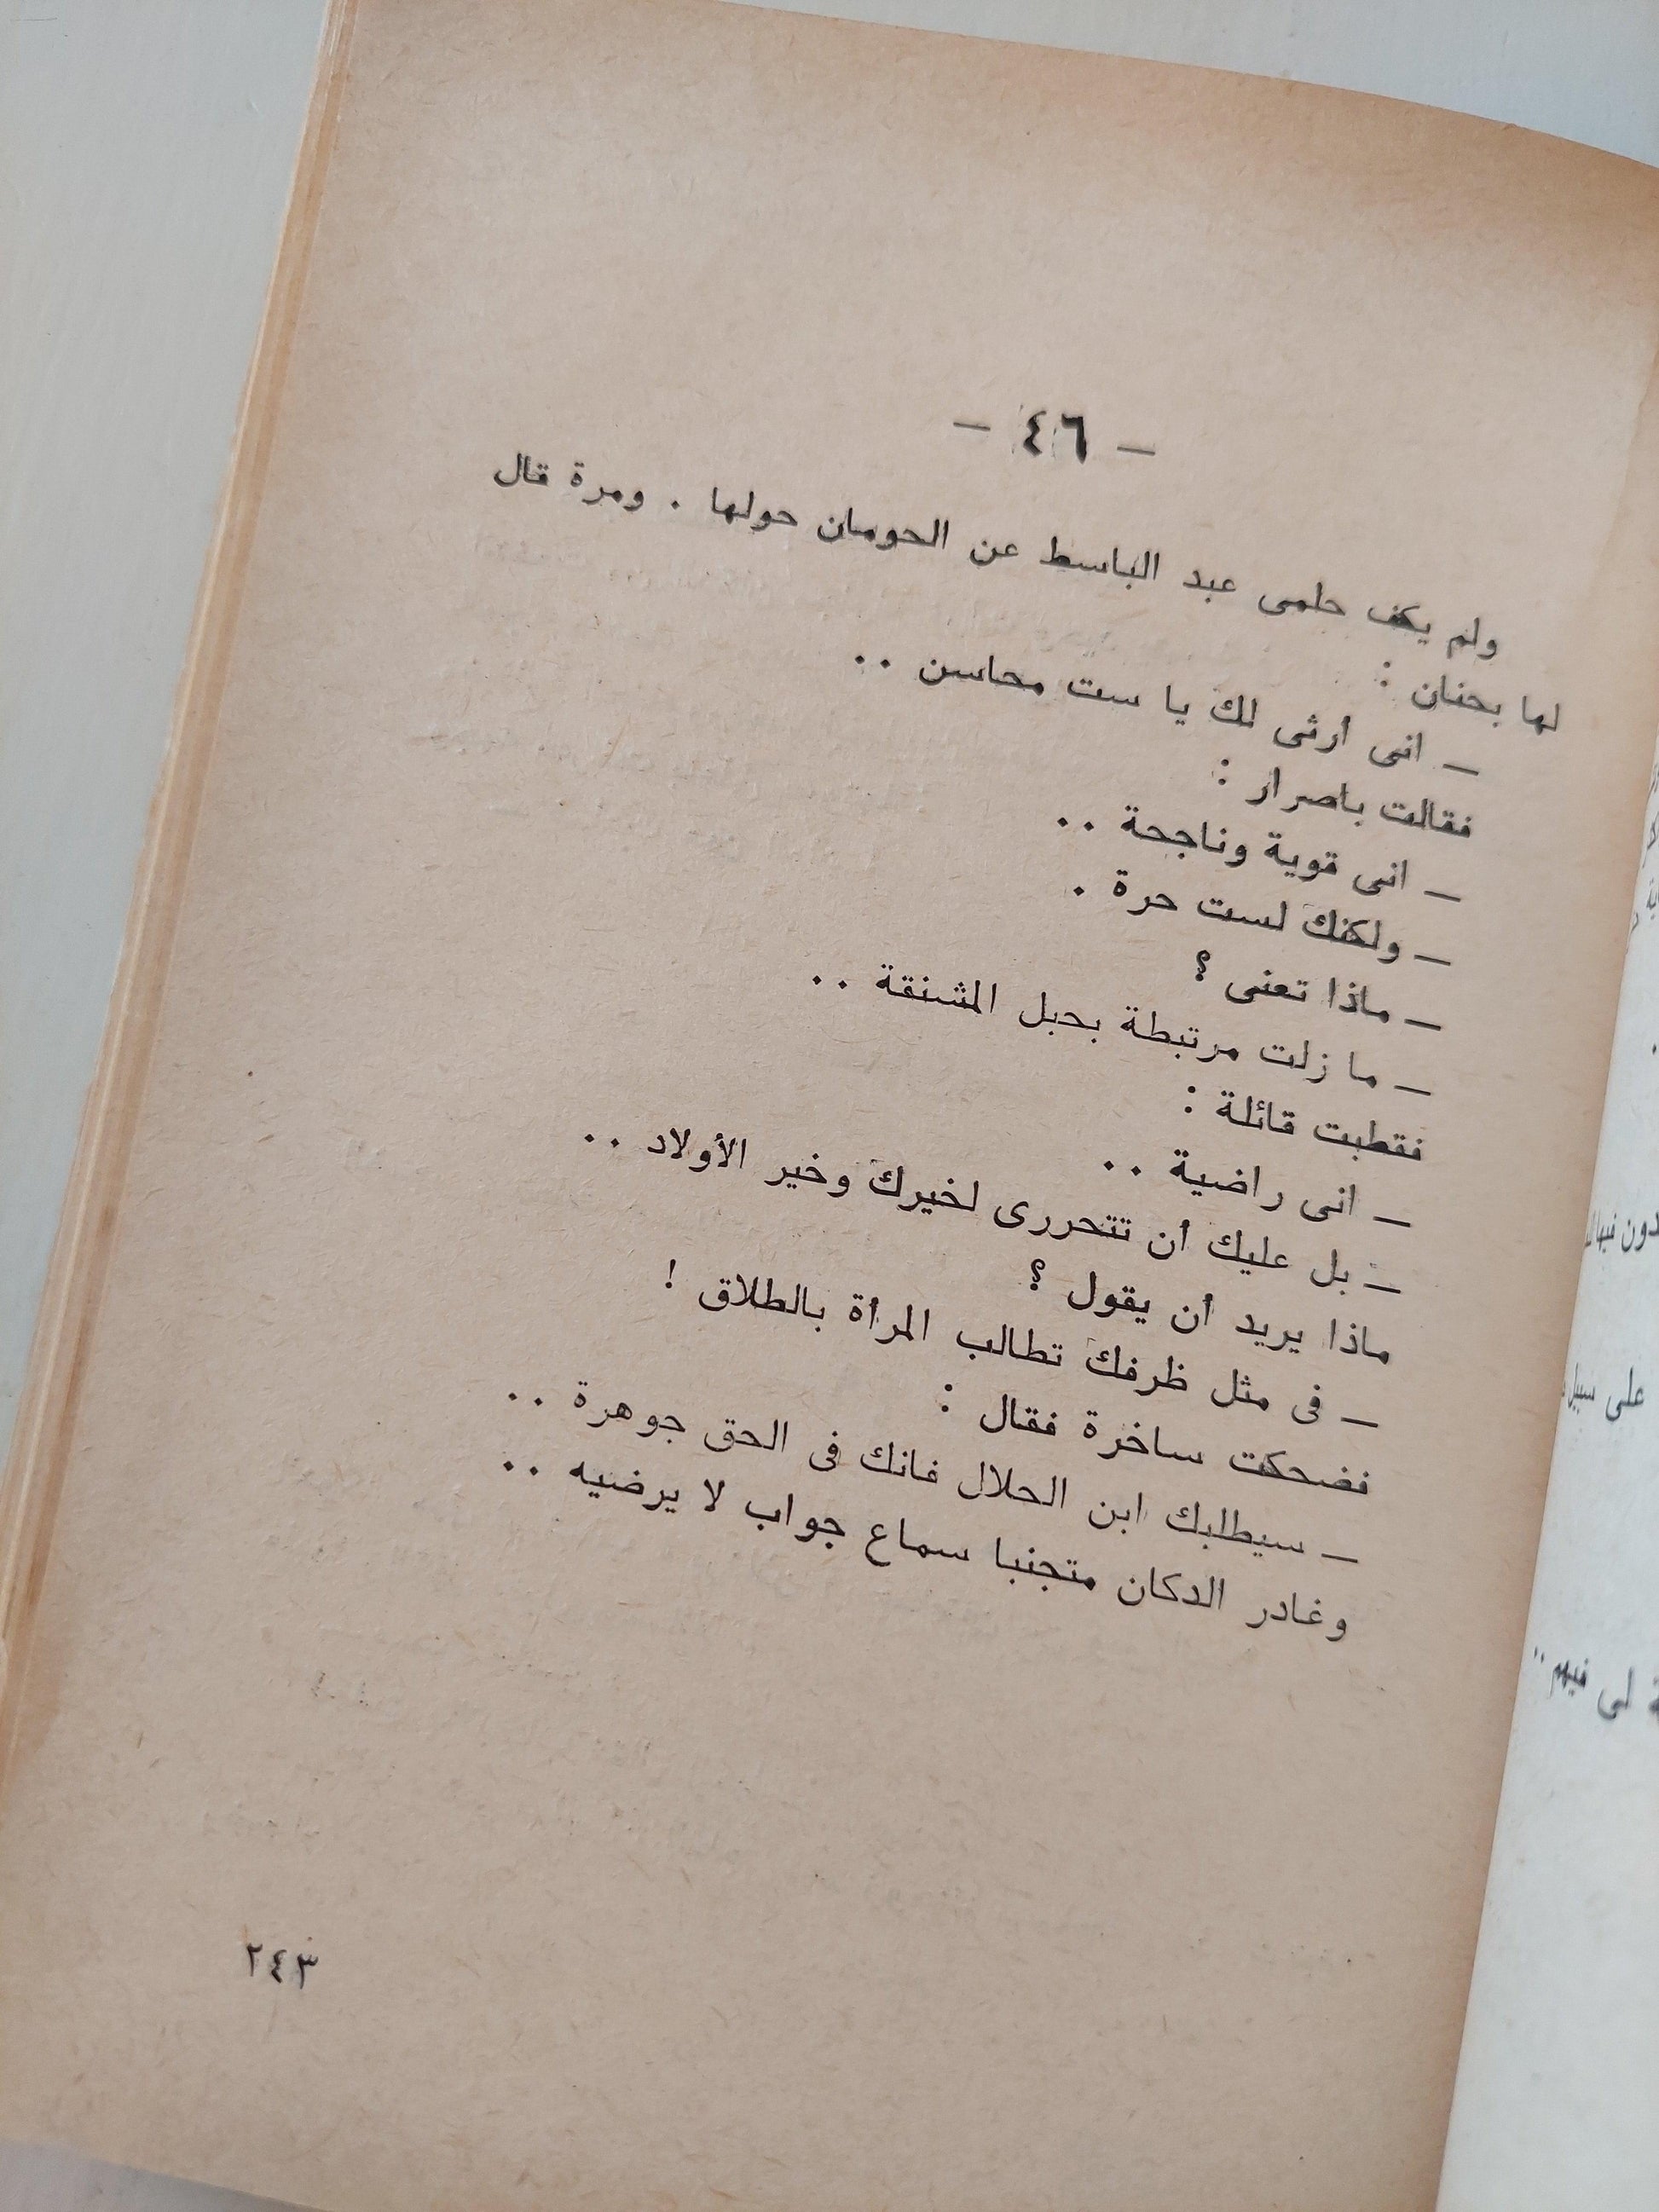 - ٤٦ -
ولم يكف حلمى عبد الباسط عن الحومان حولها . ومرة قال
لها بحنان :
— انى أرثى لك يا ست محاسن ..
فقالت باصرار :
— انى قوية وناجحة ..
— ولكنك لست حرة .
— ماذا تعنى ؟
— ما زلت مرتبطة بحبل المشنقة ..
فقطبت قائلة :
— انى راضية ..
— بل عليك أن تتحررى لخيرك وخير الأولاد ..
ماذا يريد أن يقول ؟
— فى مثل ظرفك تطالب المرأة بالطلاق !
فضحكت ساخرة فقال :
— سيطلبك ابن الحلال فانك فى الحق جوهرة ..
وغادر الدكان متجنبا سماع جواب لا يرضيه ..
٢٤٣
على سبيل
لى فيهم ..